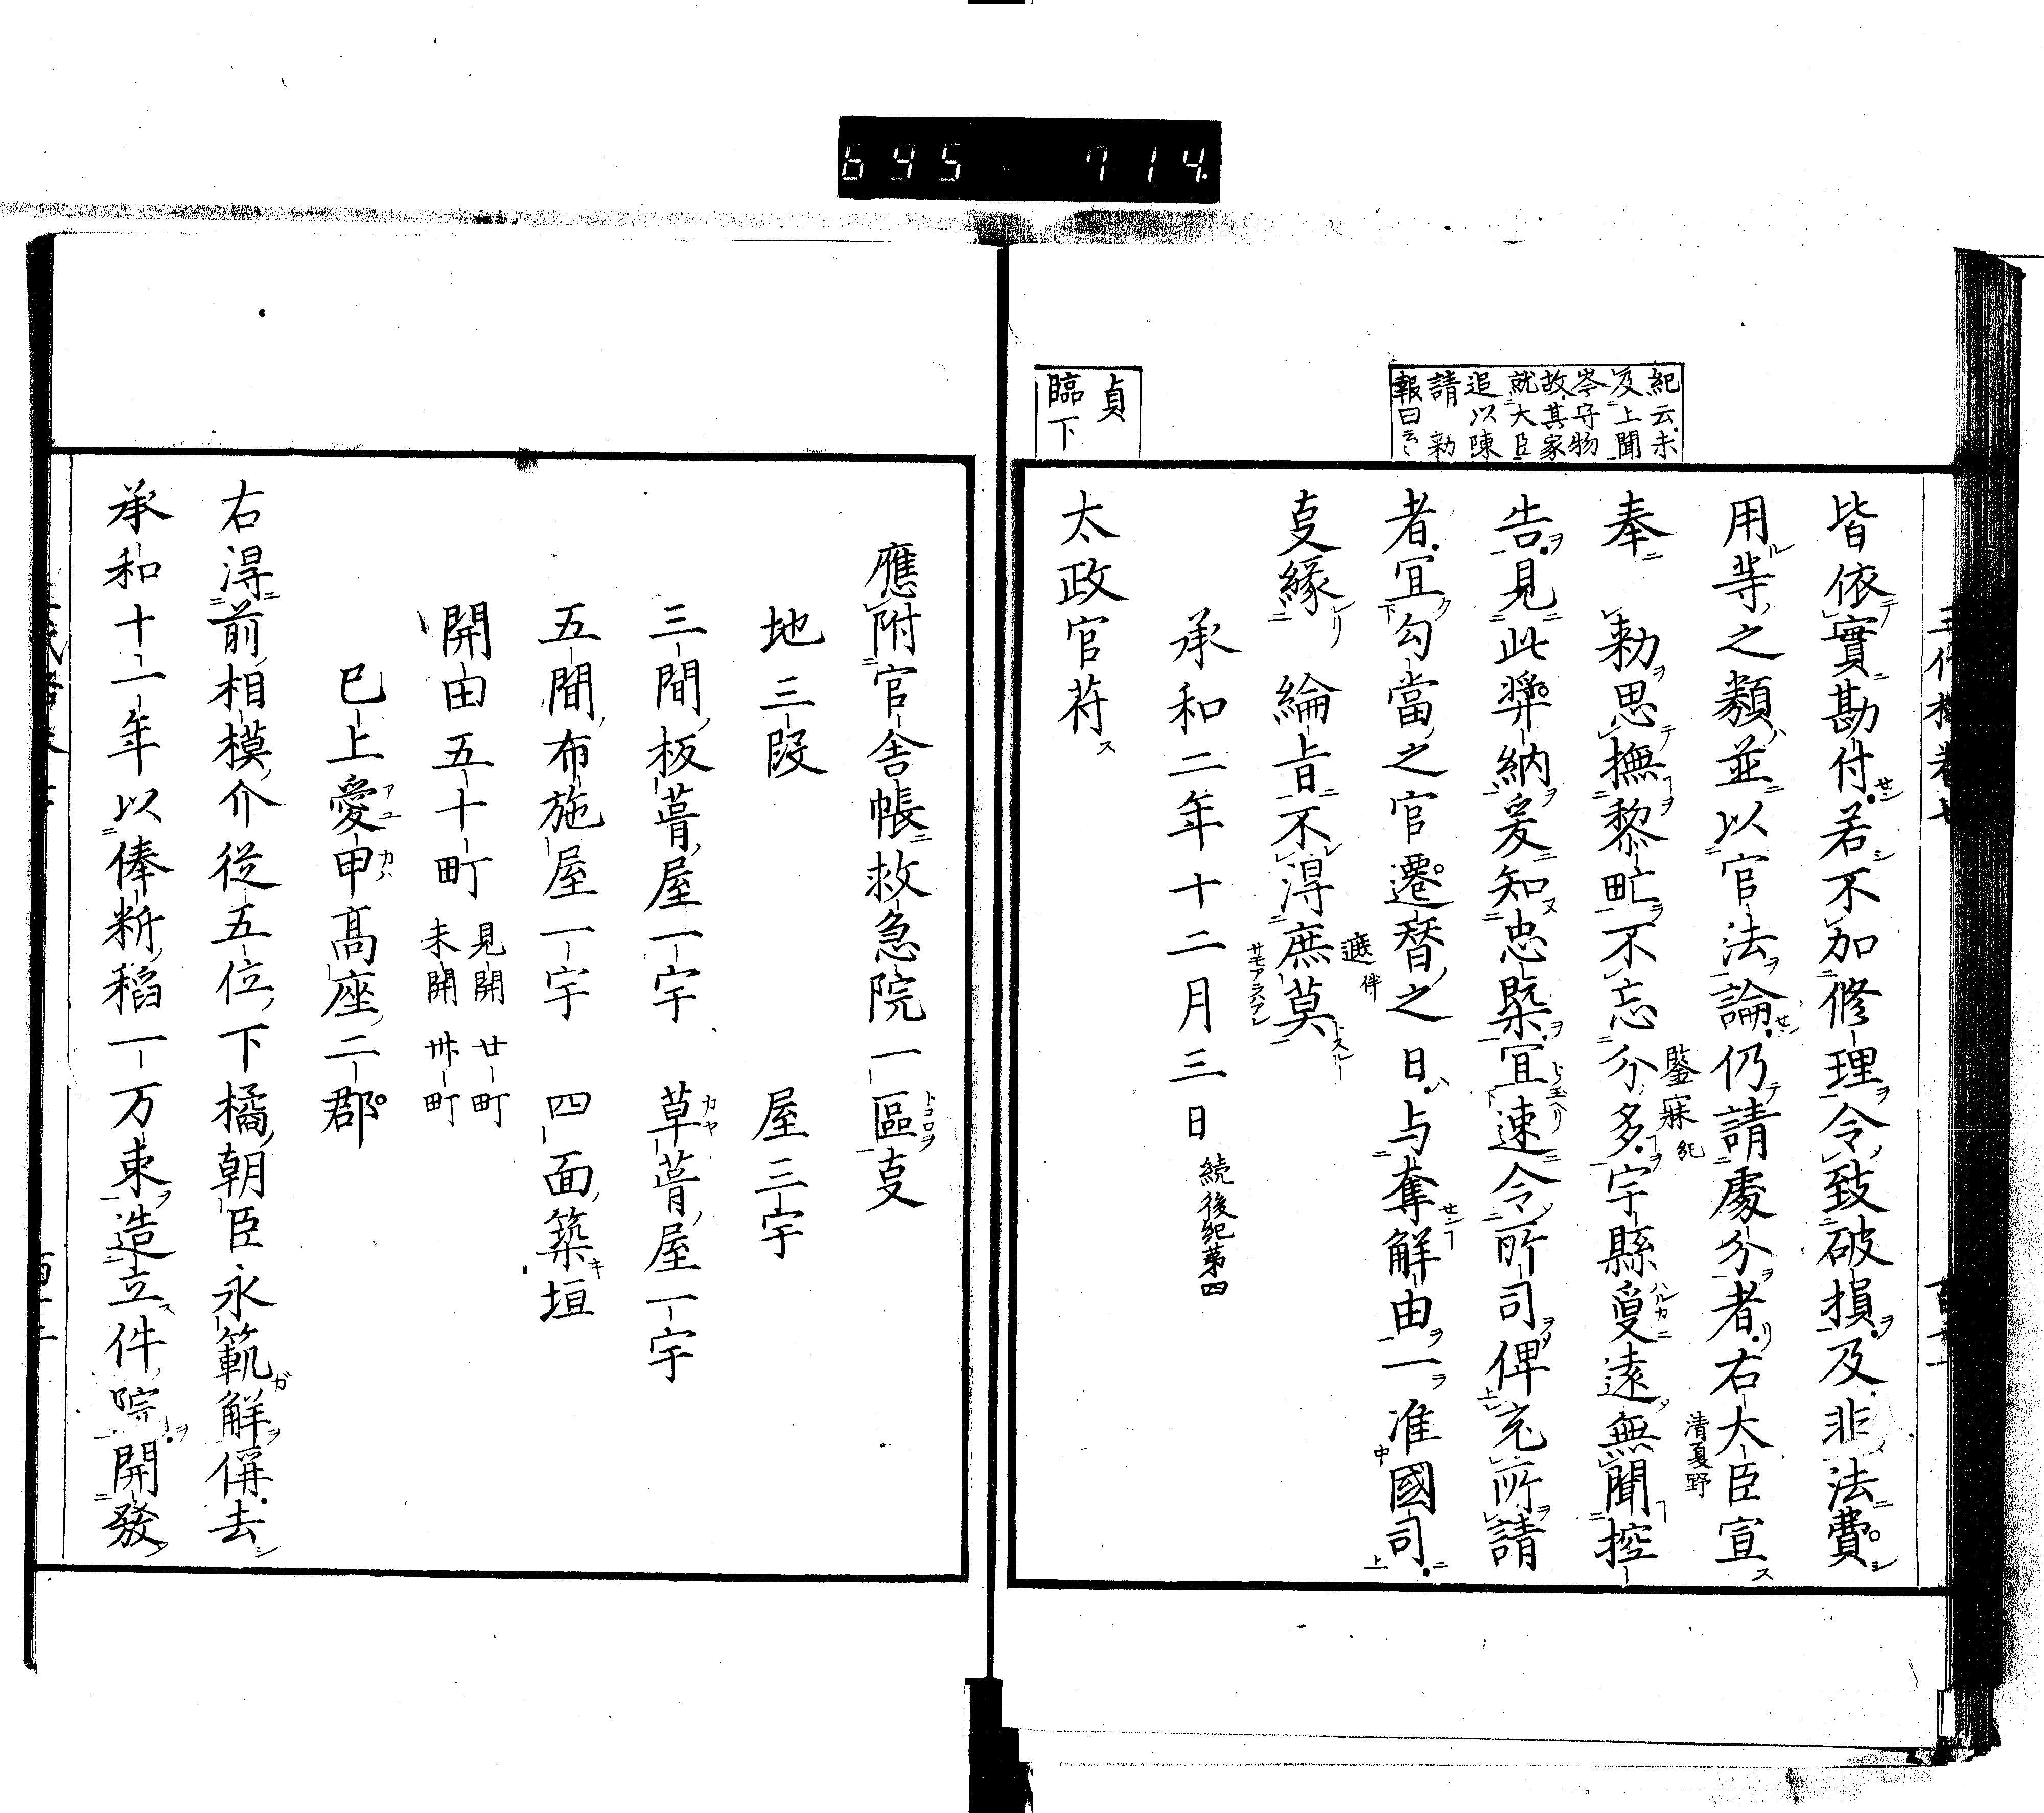 695 714
紀云未
及上聞
岑守物
故其家
就大臣
追以陳
請勅
報曰云々
貞
臨下
皆依實勘付若不加修理令致破損及非法費
用等之類並以官法論仍請處分者右大臣宣
清夏野
奉 勅思撫黎甿不忘分多宇縣敻遠無聞控
鑒寐紀
告見此弊納爰知忠槩宜速令所司俾充所請
者宜勾當之官遷替之日与奪解由一准國司
㕝緣 綸旨不淂庶莫
遮 伴
サモアラハアレ
承和二年十二月三日 続後紀第四
太政官苻
應附官舎帳救急院一區㕝
地三段 屋三宇
三間板葺屋一宇 草葺屋一宇
五間布施屋一宇 四面築垣
開田五十町 見開廿町
未開卅町
已上愛甲髙座二郡
右淂前相模介従五位下橘朝臣永範解偁去
承和十一年以俸新稻一万束造立件院開發